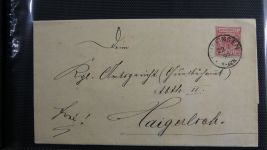 Dem
Kgl. Amtsgericht (Grundbuchamt)
Abth. II.
Frei!
Haigerloch.